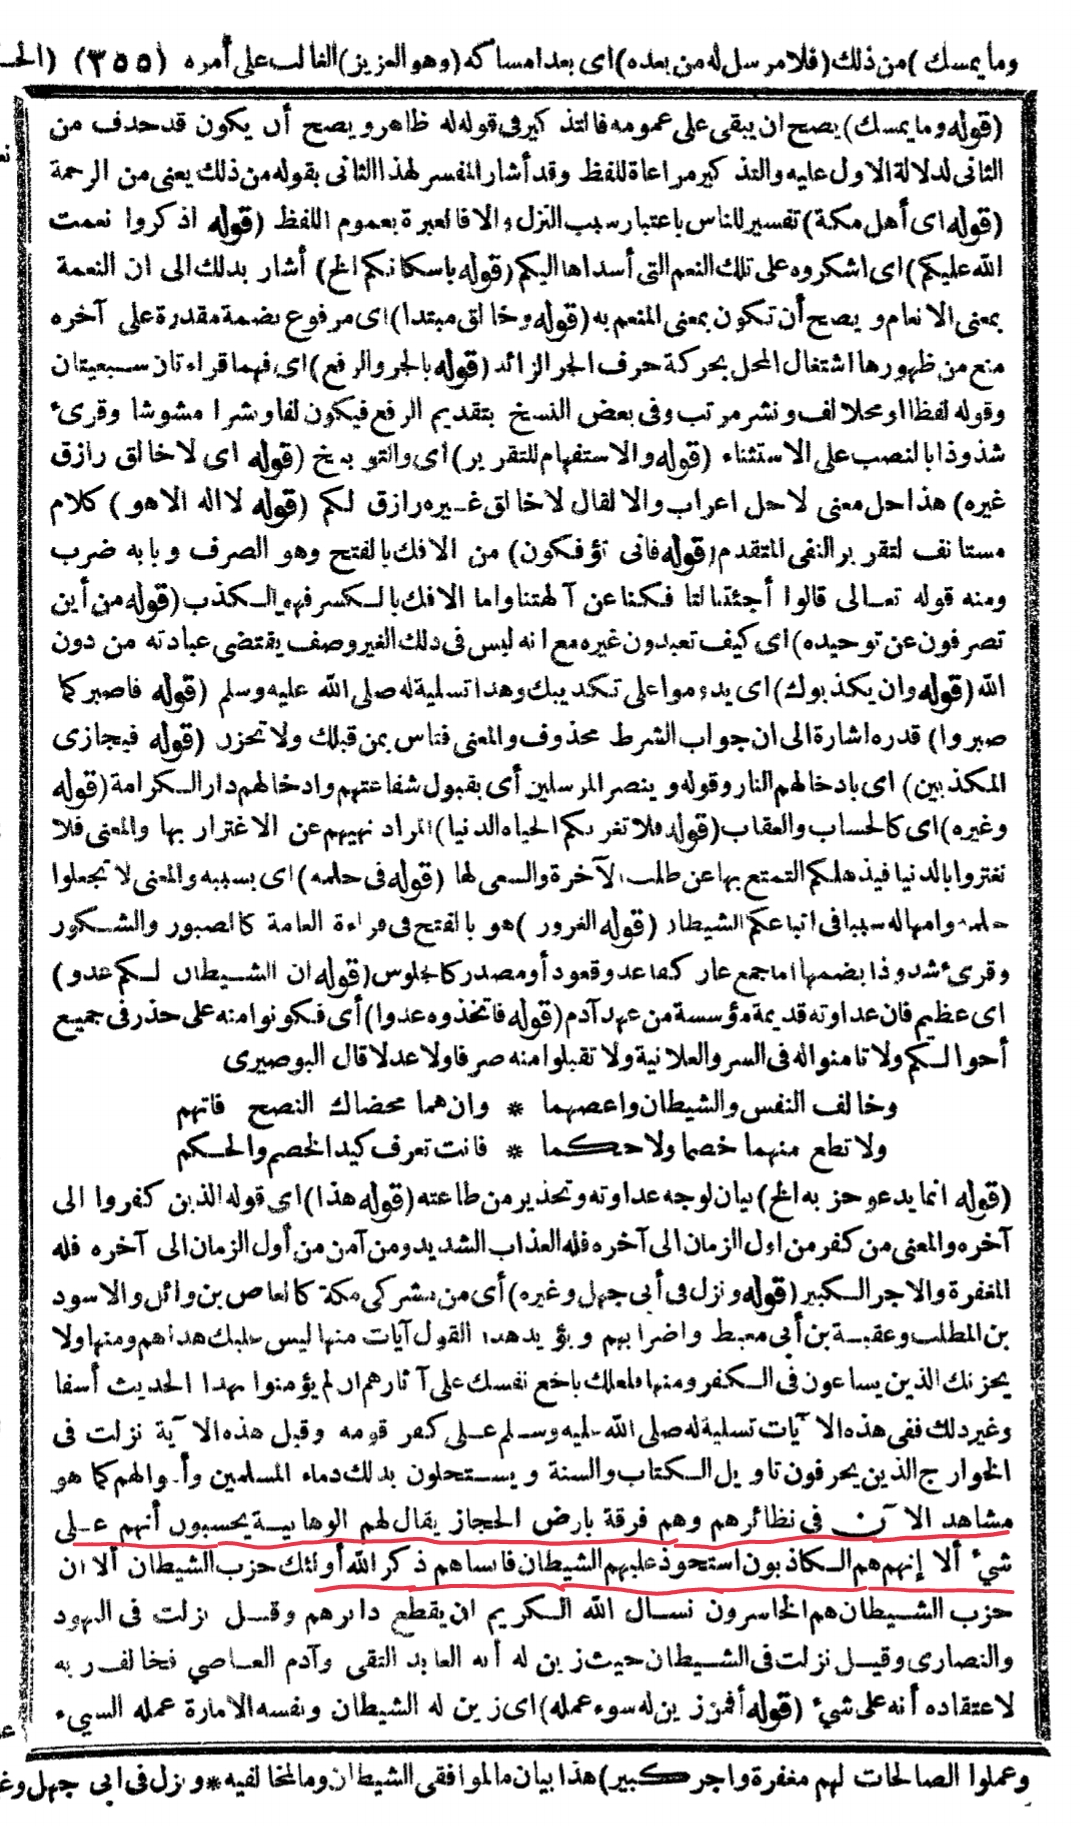 وما يمسك) من ذلك (فلا مرسل له من بعده) اى بعد امساكه (وهو العزيز) الغالب على أمره (٣٥٥)
(قوله وما يمسك) يصح ان يبقى على عمومه فالتذكير فى قوله له ظاهر و يصح أن يكون قد حذف من
الثانى لدلالة الاول عليه والتذكير مراعاة للفظ وقد أشار المفسر لهذا الثانى بقوله من ذلك يعنى من الرحمة
(قوله اى أهل مكة) تفسير للناس باعتبار سبب النزل والا فالعبرة بعموم اللفظ (قوله اذكروا نعمت
الله عليكم) اى اشكروه على تلك النعم التى أسداها اليكم (قوله باسكانكم الخ) أشار بذلك الى ان النعمة
بمعنى الانعام و يصح أن تكون بمعنى المنعم به (قوله وخالق مبتدا) اى مرفوع بضمة مقدرة على آخره
منع من ظهورها اشتغال المحل بحركة حرف الجر الزائد (قوله بالجر والرفع) اى فهما قراءتان سبعيتان
وقوله لفظا او محلا لف ونشر مرتب وفى بعض النسخ بتقديم الرفع فيكون لفا ونشرا مشوشا وقرىء
شذوذا بالنصب على الاستثناء (قوله والاستفهام للتقرير) اى والتوبيخ (قوله اى لا خالق رازق
غيره) هذا حل معنى لا حل اعراب والا لقال لا خالق غيره رازق لكم (قوله لا اله الا هو) كلام
مستانف لتقرير النفى المتقدم (قوله فانى تؤفكون) من الافك بالفتح وهو الصرف وبابه ضرب
ومنه قوله تعالى قالوا أجئتنا لتا فكنا عن آلهتنا واما الافك بالكسر فهو الكذب (قوله من أين
تصرفون عن توحيده) اى كيف تعبدون غيره مع انه ليس فى ذلك الغير وصف يقتضى عبادته من دون
الله (قوله وان يكذبوك) اى يدوموا على تكذيبك وهذا تسلية له صلى الله عليه وسلم (قوله فاصبر كما
صبروا) قدره اشارة الى ان جواب الشرط محذوف والمعنى فتاس بمن قبلك ولا تحزن (قوله فيجازى
المكذبين) اى بادخالهم النار وقوله و ينصر المرسلين أى بقبول شفاعتهم وادخالهم دار الكرامة (قوله
وغيره) اى كالحساب والعقاب (قوله فلا تغرنكم الحياه الدنيا) المراد نهيهم عن الاغترار بها والمعنى فلا
تغتروا بالدنيا فيذهلكم التمتع بها عن طلب الآخرة والسعى لها (قوله فى حلمه) اى بسببه والمعنى لا تجعلوا
حلمه وامهاله سببا فى اتباعكم الشيطان (قوله الغرور) هو بالفتح فى قراءة العامة كالصبور والشكور
وقرىء شذوذا بضمها اما جمع غار كقاعد وقعود أو مصدر كالجلوس (قوله ان الشيطان لكم عدو)
اى عظيم فان عداوته قديمة مؤسسة من عهد آدم (قوله فاتخذوه عدوا) أى فكونوا منه على حذر فى جميع
أحوالكم ولا تامنوا له فى السر والعلانية ولا تقبلوا منه صرفا ولا عدلا قال البوصيرى
وخالف النفس والشيطان واعصهما * وان هما محضاك النصح فاتهم
ولا تطع منهما خصما ولا حكما * فانت تعرف كيد الخصم والحكم
(قوله انما يدعو حزبه الخ) بيان لوجه عداوته وتحذير من طاعته (قوله هذا) اى قوله الذين كفروا الى
آخره والمعنى من كفر من اول الزمان الى آخره فله العذاب الشديد ومن آمن من أول الزمان الى آخره فله
المغفرة والاجر الكبير (قوله ونزل فى أبى جهل وغيره) أى من مشركى مكة كالعاص بن وائل والاسود
بن المطلب وعقبة بن أبى معيط واضرابهم و يؤيد هذا القول آيات منها ليس عليك هداهم ومنها ولا
يحزنك الذين يسارعون فى الكفر ومنها فلعلك باخع نفسك على آثارهم ان لم يؤمنوا بهذا الحديث أسفا
وغير ذلك ففى هذه الآيات تسلية له صلى الله عليه وسلم على كفر قومه وقيل هذه الآية نزلت فى
الخوارج الذين يحرفون تاويل الكتاب والسنة و يستحلون بذلك دماء المسلمين وأموالهم كما هو
مشاهد الآن فى نظائرهم وهم فرقة بارض الحجاز يقال لهم الوهابية يحسبون أنهم على
شىء ألا إنهم هم الكاذبون استحوذ عليهم الشيطان فانساهم ذكر الله أولئك حزب الشيطان ألا ان
حزب الشيطان هم الخاسرون نسال الله الكريم ان يقطع دابرهم وقيل نزلت فى اليهود
والنصارى وقيل نزلت فى الشيطان حيث زين له أنه العابد التقى وآدم العاصي فخالف ربه
لاعتقاده أنه على شىء (قوله أفمن زين له سوء عمله) اى زين له الشيطان ونفسه الامارة عمله السيىء
وعملوا الصالحات لهم مغفرة واجر كبير) هذا بيان ما لموافقى الشيطان وما لمخالفيه * ونزل فى ابى جهل